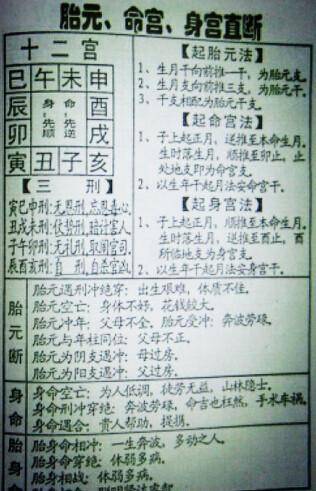 胎元、命宫、身宫直断
十二宫
巳午未申
辰 身:先顺 命:先逆 酉
卯 戌
寅丑子亥
【三 刑】
寅巳申刑:无恩刑,忘恩毒心。
丑戌未刑:仗势刑,赔计害人。
子午卯刑:无礼刑,取闹官司。
辰酉亥刑:自 刑,自杀官凶。
【起胎元法】
1、生月干向前推一干,为胎元支。
2、生月支向前推三支,为胎元干。
3、干支相配为胎元干支。
【起命宫法】
1、子上起正月,逆推至本命生月。
生时落生月,顺推至卯止,止
处地支即为命宫支。
2、以生年干起月法安命宫干。
【起身宫法】
1、子上起正月,顺推至本命生月。
生时落生月,逆推至酉止,酉
所临地支为身宫支。
2、以生年干起月法安身宫干。
胎元断
胎元遇刑冲绝穿:出生艰难,体质不佳。
胎元空亡:身体不好,花钱较大。
胎元冲年:父母不全。胎元受冲:奔波劳碌。
胎元与年柱同位:父母不正。
胎元为阴支遇冲:母过房。
胎元为阳支遇冲:父过房。
身命
身命空亡:为人低调,徒劳无益,山林隐士。
身命刑冲穿绝:奔波劳碌,命吉也枉然,手术车祸。
身命遇合:贵人帮助,提携。
胎身命
胎身命相冲:一生奔波,多动之人。
胎身命穿绝:体弱多病。
胎身相战:体弱多病。